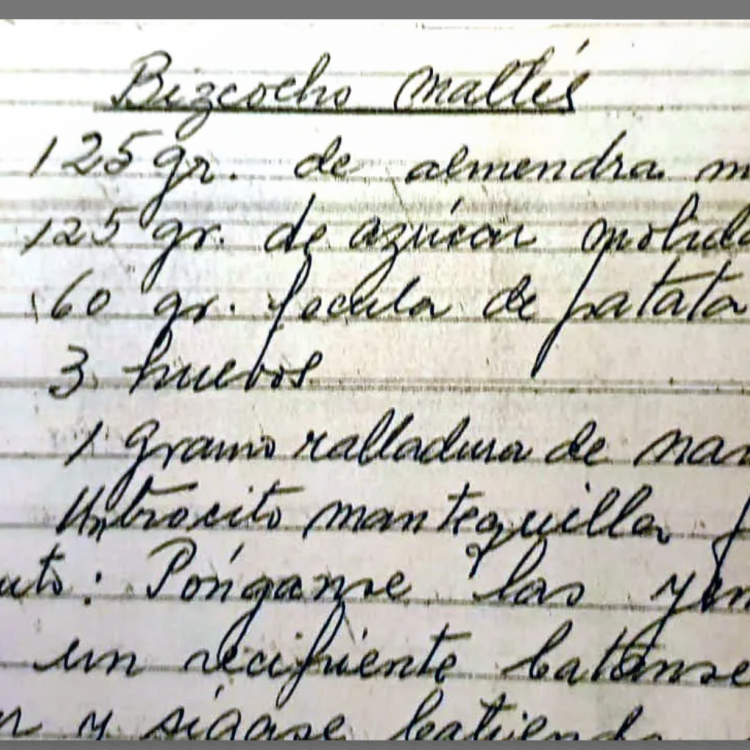 Bizcocho Maltés
125 gr. de almendra m
125 gr. de azúcar molida
60 gr. fecula de patata
3 huevos
1 gramo ralladura de nar
Un trocito mantequilla
uto: Pónganse las yem
un recipiente batanse
n y sígase batiendo